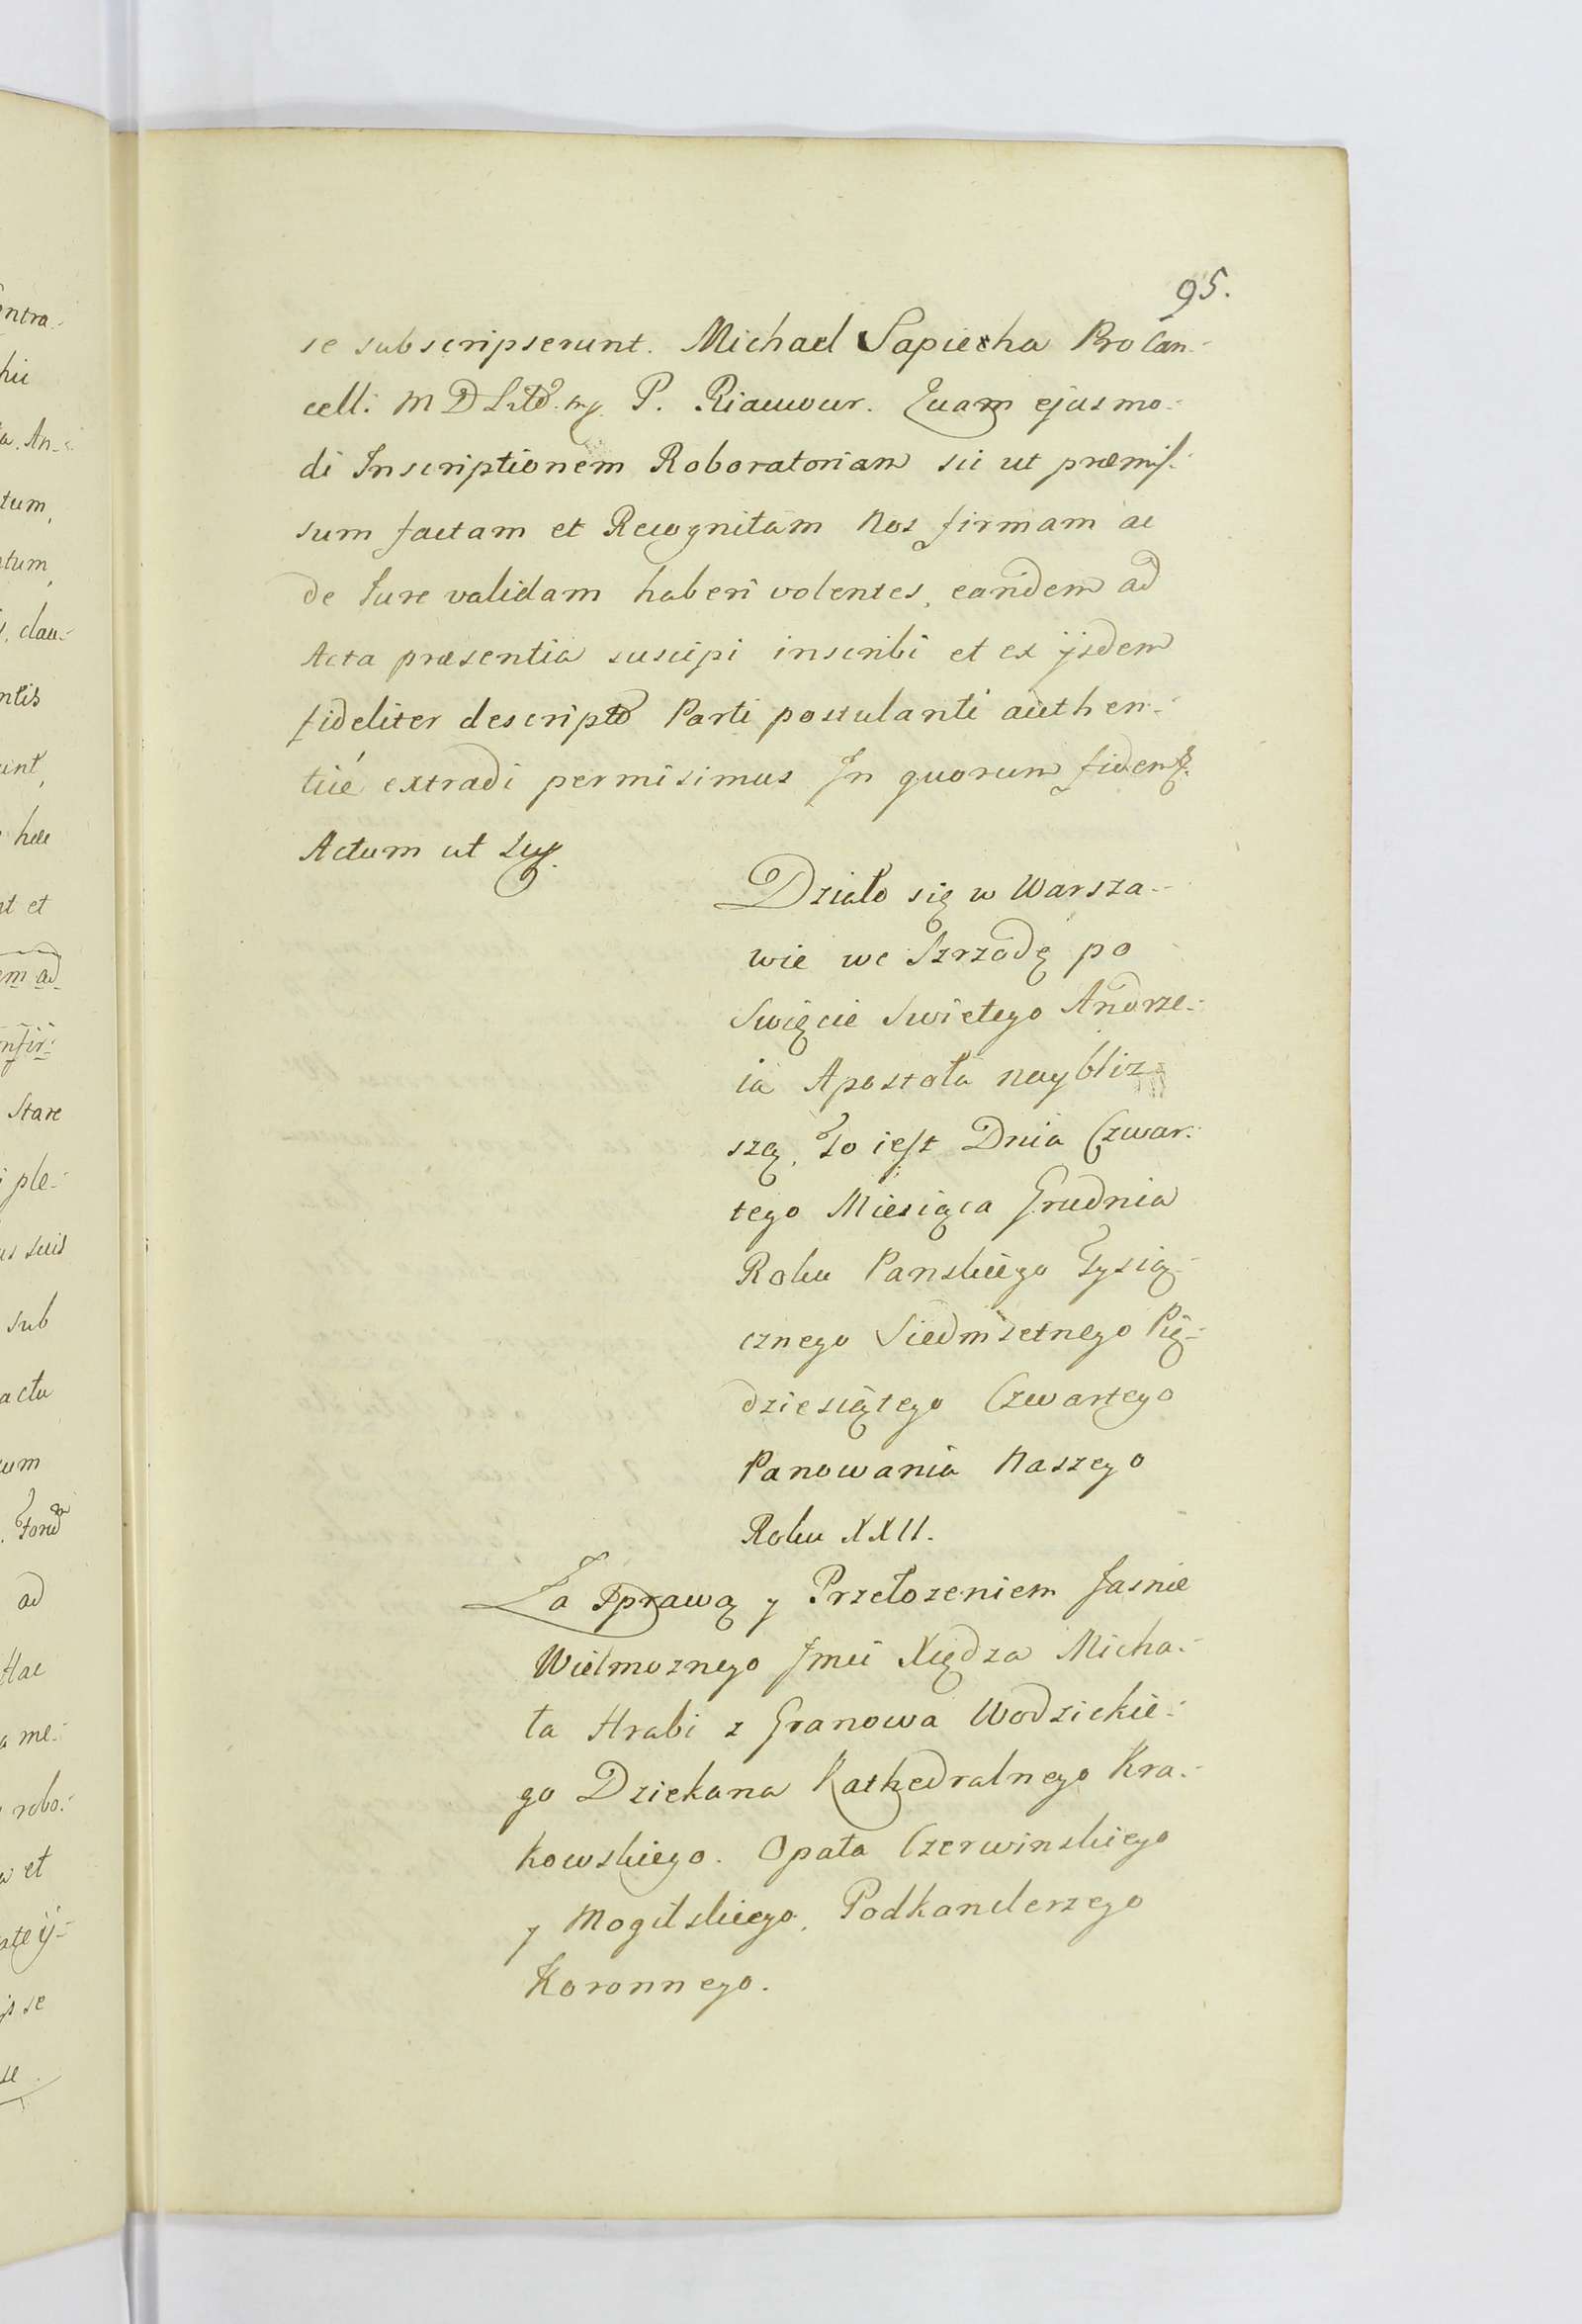 95.
se subscripserunt. Michael Sapiecha Pro Can-
cell: M D Litd. P. Riauwur. Quam ejusmo-
di Inscriptionem Roboratoriam sic ut præmis-
sum factam et Recognitam Nos firmam ac
de Iure validam haberi volentes, eandem ad
Acta præsentia suscipi inscribi et ex ijsdem
fideliter descriptd Parti postulanti authen-
ticé extradi permisimus In quorum fidem &.
Actum ut sup.
Działo się w Warsza-
wie we Szrzodę po
Swięcie Swietego Andrze-
ia Apostoła nayblisz
szą, To iest Dnia Czwar-
tego Miesiąca Grudnia
Roku Panskiego Tysią-
cznego Siedmsetnego Pię-
dziesiątego Czwartego
Panowania Naszego
Roku XXII.
Za Sprawą y Przełozeniem Jasnie
Wielmoznego Jmci Xiędza Micha-
ła Hrabi z Granowa Wodzickie-
go Dziekana Kathedralnego Kra-
kowskiego. Opata Czerwinskiego
y Mogilskiego, Podkanclerzego
Koronnego.
ntra-
hic
a. An-
tum,
tum,
clau-
ntis
unt,
hæc
nt et
em ad
nfir-
Stare
i ple-
us suis
sub
actu
um
ad
Hac
a me-
robo-
a et
ate ij-
js se
se.